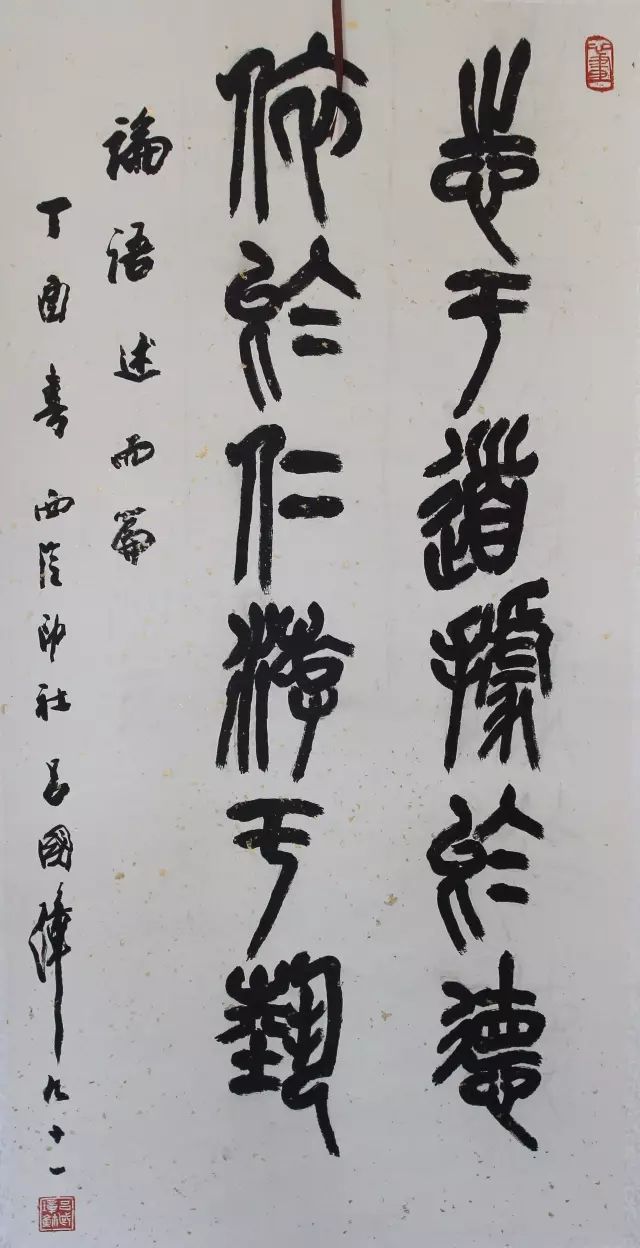 志于道據於德
依於仁游于藝
論語述而篇
丁酉春西泠印社吕國璋九十一